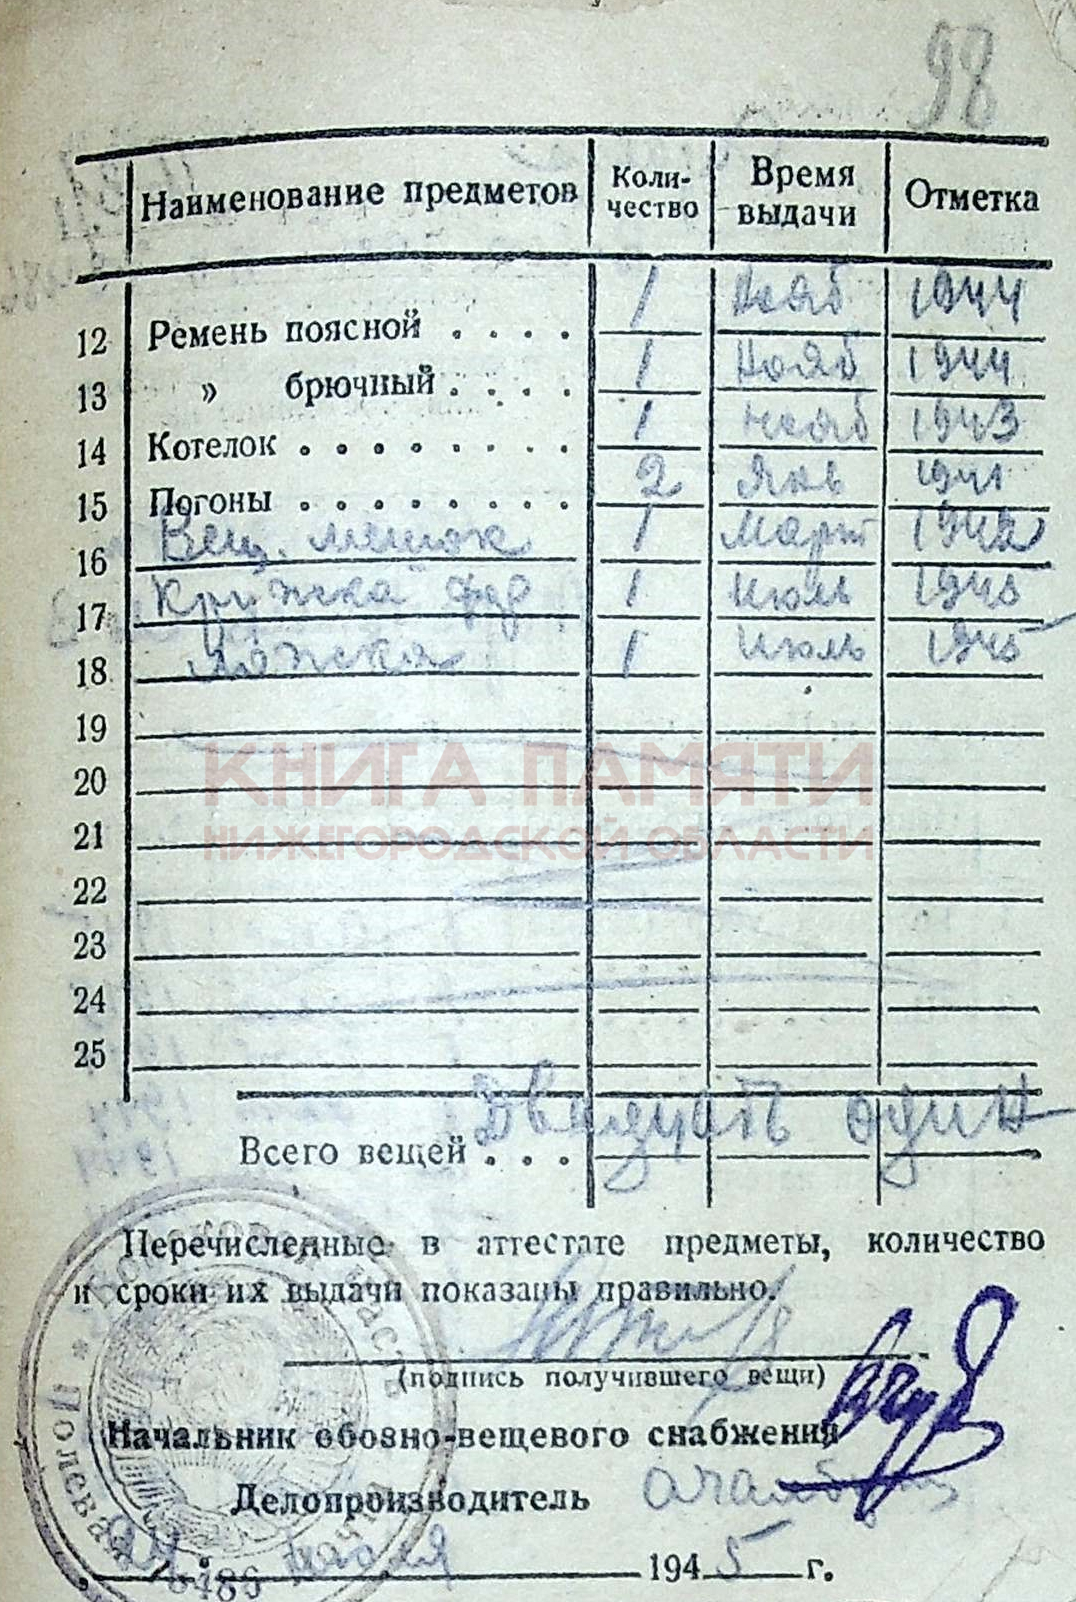 98
Наименование предметов Коли-чество Время выдачи Отметка
12 Ремень поясной . . . . 1 Нояб 1944
13 » брючный . . . . 1 Нояб 1944
14 Котелок . . . . . . . . 1 нояб 1943
15 Погоны . . . . . . . . 2 Янв
16 Вещ. мешок 1 Март
17 Кружка 1 Июль 1945
18 Ложка 1 Июль 1945
19
20
КНИГА ПАМЯТИ
21
НИЖЕГОРОДСКОЙ ОБЛАСТИ
22
23
24
25
Всего вещей . . . Двадцать один
Перечисленные в аттестате предметы, количество
и сроки их выдачи показаны правильно.
(подпись получившего вещи)
Начальник обозно-вещевого снабжения
Делопроизводитель
июля 1945 г.
* Войсковая часть
Полевая почта